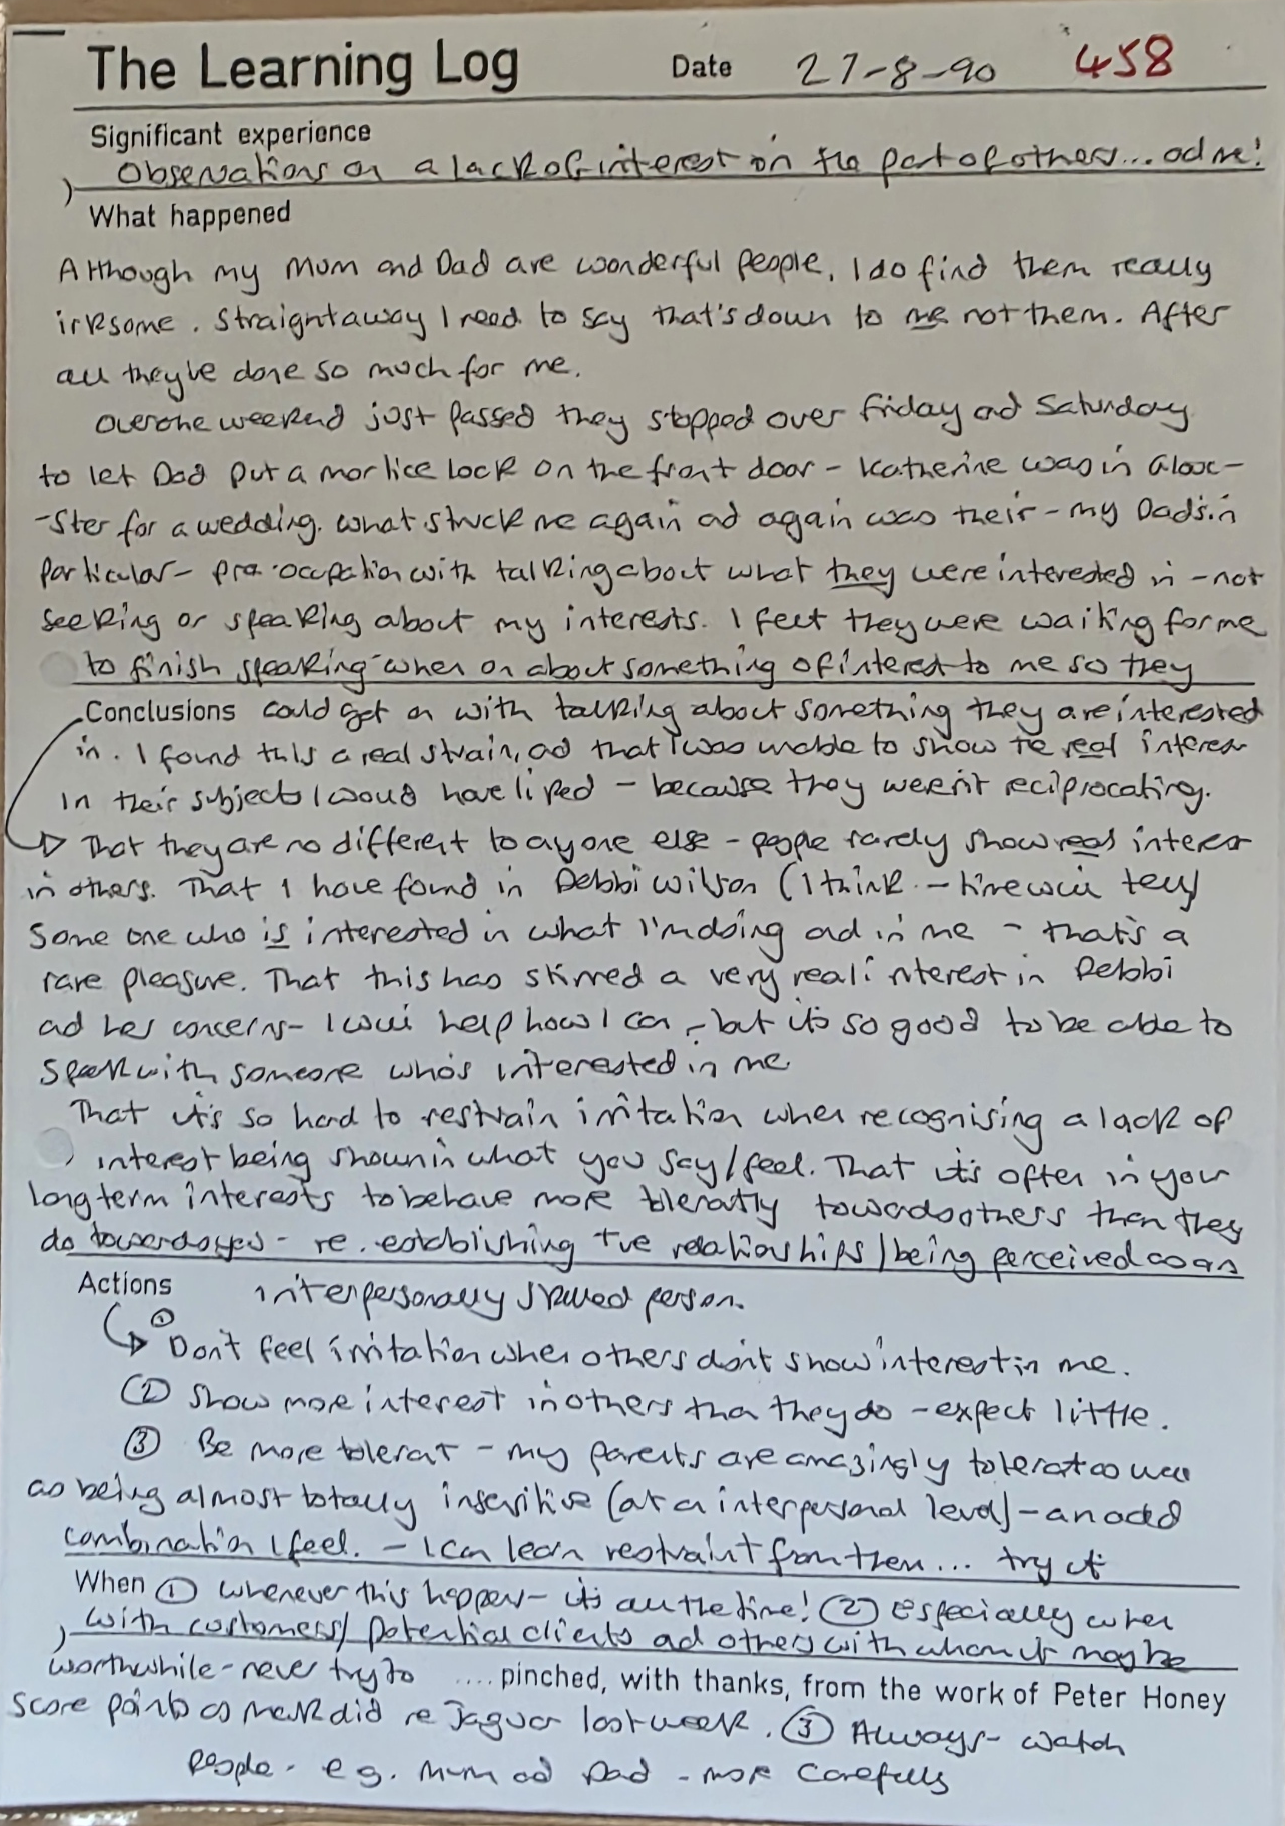 The Learning Log Date 27-8-90 458
Significant experience
Observations on a lack of interest on the part of others... ad me!
What happened
Although my Mum and Dad are wonderful people, I do find them really
irksome. Straightaway I need to say that's down to me not them. After
all they've done so much for me.
Over the weekend just passed they stopped over Friday ad Saturday
to let Dad put a mortice lock on the front door - Katherine was in Glouc-
-ster for a wedding. What struck me again ad again was their - my Dad's in
particular - pre-occupation with talking about what they were interested in - not
seeking or speaking about my interests. I feel they were waiting for me
to finish speaking when on about something of interest to me so they
Conclusions could get on with talking about something they are interested
in. I found this a real strain, ad that I was unable to show the real interest
in their subjects I would have liked - because they weren't reciprocating.
That they are no different to anyone else - people rarely show real interest
in others. That I have found in Debbi Wilson (I think - time will tell)
some one who is interested in what I'm doing ad in me - that's a
rare pleasure. That this has stirred a very real interest in Debbi
ad her concerns - I will help how I can - but it's so good to be able to
speak with someone who's interested in me.
That it's so hard to restrain irritation when recognising a lack of
interest being shown in what you say/feel. That it's often in your
long term interests to behave more tolerantly towards others than they
do towards you - re. establishing +ve relationships / being perceived as an
Actions interpersonally skilled person.
① Don't feel irritation when others don't show interest in me.
② Show more interest in others than they do - expect little.
③ Be more tolerant - my parents are amazingly tolerant as well
as being almost totally insensitive (at an interpersonal level) - an odd
combination I feel. - I can learn restraint from them... try it
When ① whenever this happens - it's all the time! ② Especially when
with customers/potential clients ad others with whom it may be
worthwhile - never try to .... pinched, with thanks, from the work of Peter Honey
score points as Mark did re Jaguar last week. ③ Always - watch
people - e.g. Mum ad Dad - more carefully